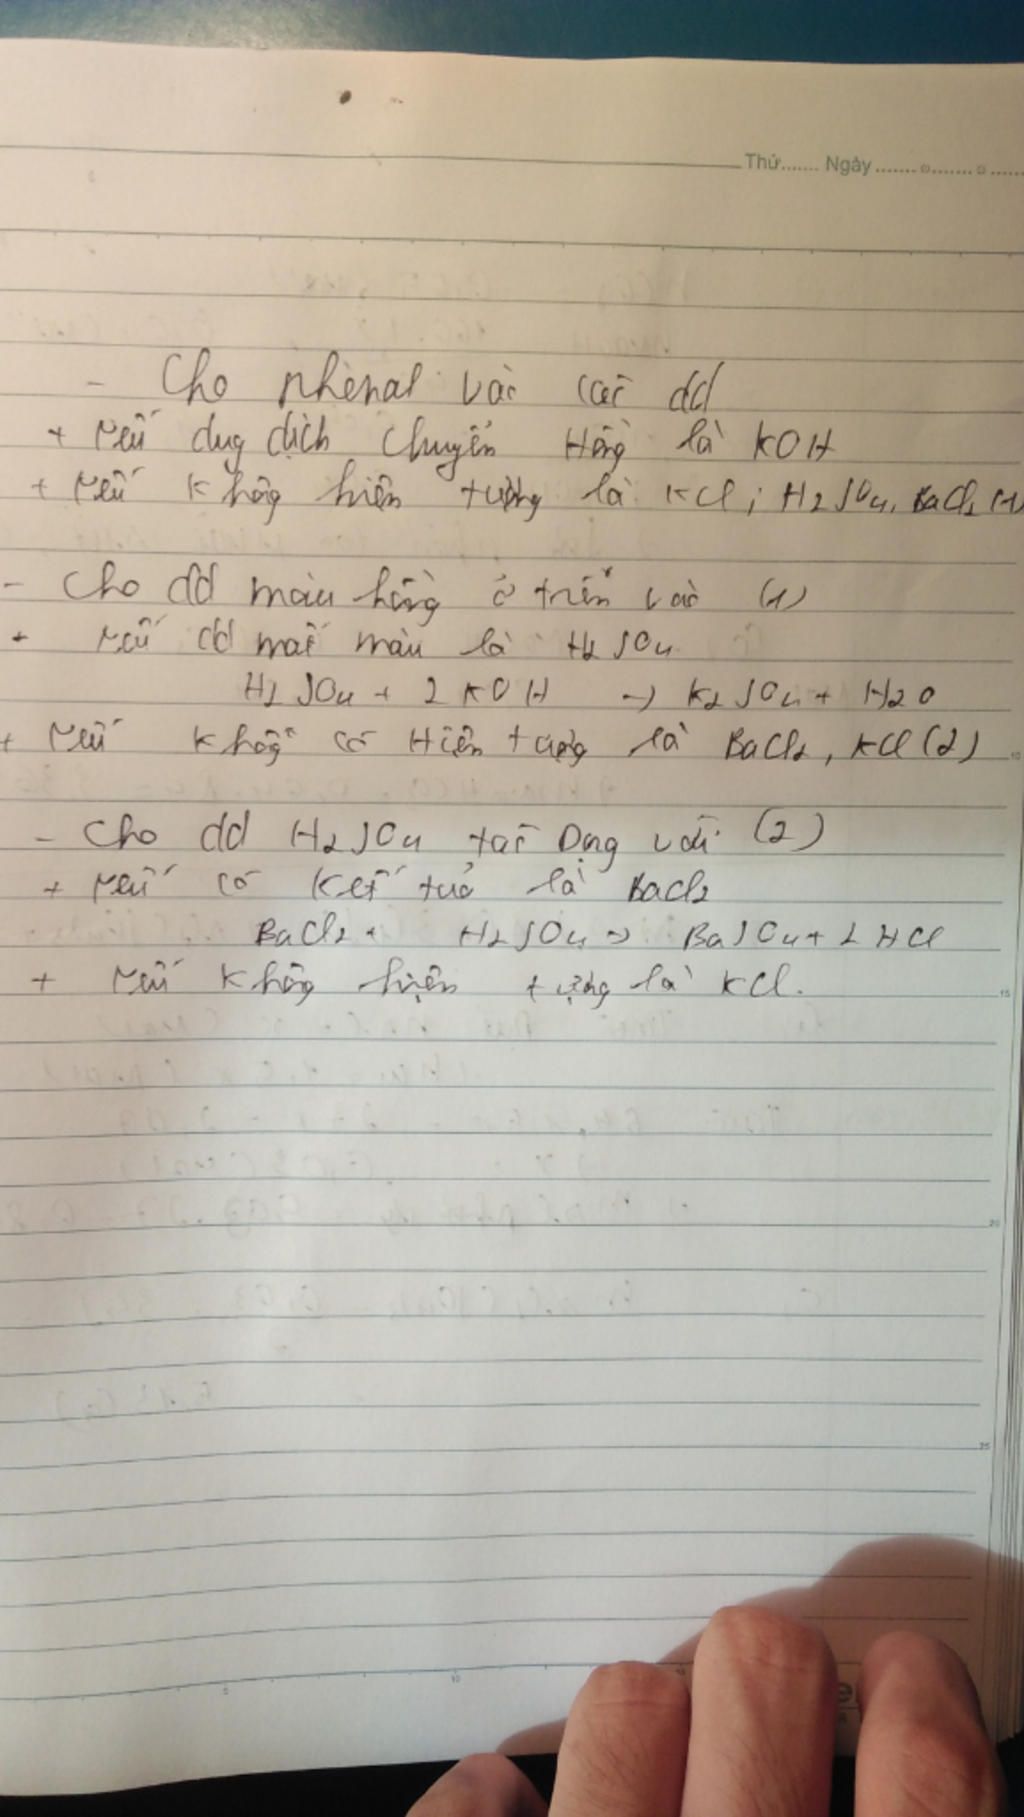 Thứ....... Ngày
- Cho phenal vào các dd
+ Nếu dug dịch chuyển Hồng là KOH
+ Nếu không hiện tượng là KCl, H2SO4, BaCl2 (1)
- Cho dd màu hồng ở trên vào (1)
+ Nếu dd mất màu là H2SO4
H2SO4 + 2KOH → K2SO4 + H2O
+ Nếu không có Hiện tượng là BaCl2, KCl (2)
- Cho dd H2SO4 tác Dụng với (2)
+ Nếu có Kết tủa là BaCl2
BaCl2 + H2SO4 → BaSO4 + 2HCl
+ Nếu không hiện tượng là KCl.